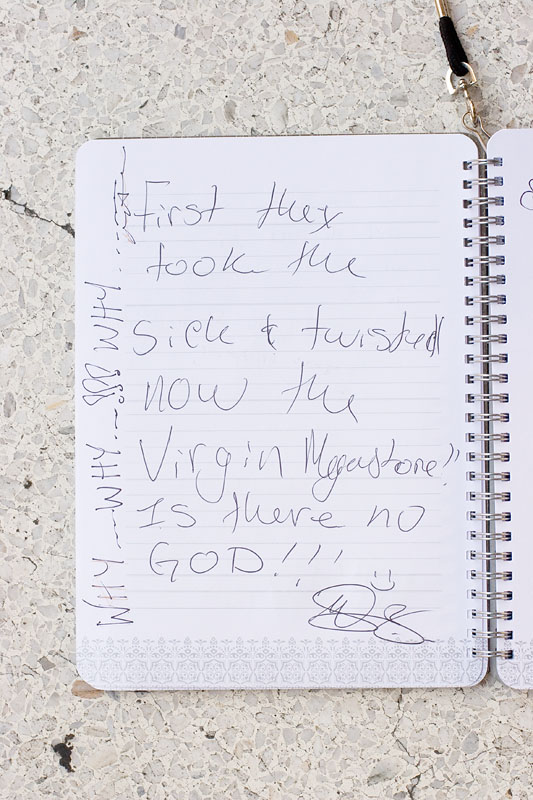 First they
took the
Sick & twisted
now the
Virgin Megastore!!
Is there no
GOD!!!
WHY....WHY....??? WHY....